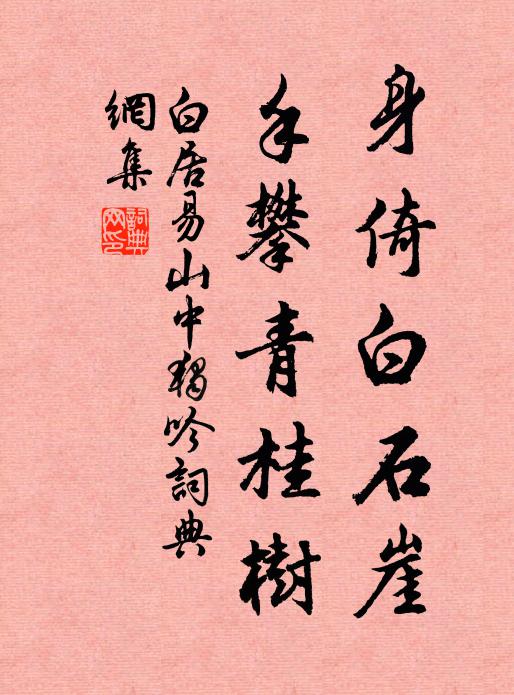 身倚白石崖
手攀青桂樹
白居易山中獨吟詞典
網集
詞典
网印